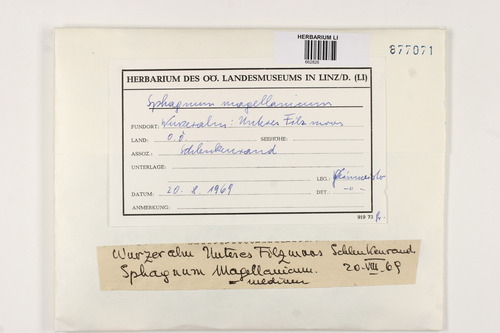 HERBARIUM LI
877071
HERBARIUM DES OÖ. LANDESMUSEUMS IN LINZ/D. (LI)
Sphagnum magellanicum
FUNDORT: Wurzeralm: Unteres Filzmoos
LAND: O.Ö. SEEHÖHE:
ASSOZ.: Schlenkenrand
UNTERLAGE:
LEG.:
DATUM: 20. 8. 1969 DET.: -"-
ANMERKUNG:
919 73
Wurzeralm Unteres Filzmoos Schlenkenrand
Sphagnum Magellanicum. 20. VIII. 69
medium